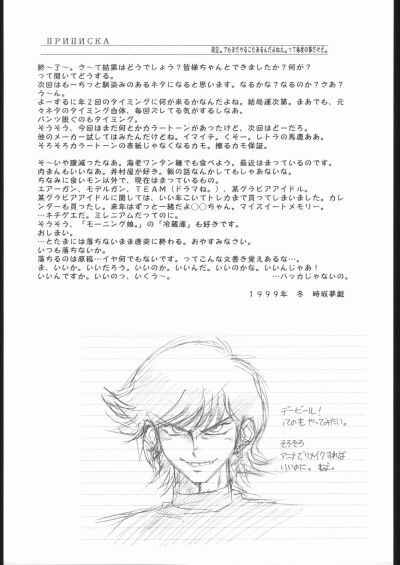 ПРИПИСКА
後記。でもまだやることあるんだよねえ。って毎度の事だけど。
終〜了〜。さ〜て結果はどうでしょう？皆様ちゃんとできましたか？何が？
って聞いてどうする。
次回はもーちっと馴染みのあるネタになると思います。なるかな？なるのか？さあ？
う〜ん。
よーするに年２回のタイミングに何が来るかなんだよね。結局運次第。まあでも、元
々ネタのタイミング自体、毎回ズレてる気がするしなあ。
パンツ脱ぐのもタイミング。
そうそう、今回はまだ何とかカラートーンがあったけど、次回はどーだろ。
他のメーカー試してはみたんだけどね。イマイチ。くそー。レトラの馬鹿ああ。
そろそろカラートーンの表紙じゃなくなるカモ。擦るカモ保証。
そ〜いや腹減ったなあ。海老ワンタン麺でも食べよう。最近はまっているのです。
肉まんもいいなあ。井村屋が好き。桜の話なんかしてもしゃあないな。
ちなみに食いモン以外で、現在はまっているもの。
エアーガン、モデルガン、ＴＥＡＭ（ドラマね。）、某グラビアアイドル。
某グラビアアイドルに関しては、いい年こいてトレカまで買ってしまいました。カ
レンダーも買ったし。来年はずっと一緒だよ○○ちゃん。マイスイートメモリー。
…キチゲエだ。ミレニアムだってのに。
そうそう、「モーニング娘。」の「冷蔵庫」も好きです。
おしまい。
…とたまには落ちないまま唐突に終わる。おやすみなさい。
いつも落ちないか。
落ちるのは原稿…イヤ何でもないです。ってこんな文書き覚えあるな…。
ま、いいか。いいだろう。いいのか。いいんだ。いいのかな。いいんじゃあ！
いいんですか。いいのっ、いくぅ〜。　…バッカじゃないの。
１９９９年　冬　時坂夢戯
デービール！
ってのも やってみたい。
そろそろ
アニメでリメイクすれば
いいのに。ねえ。